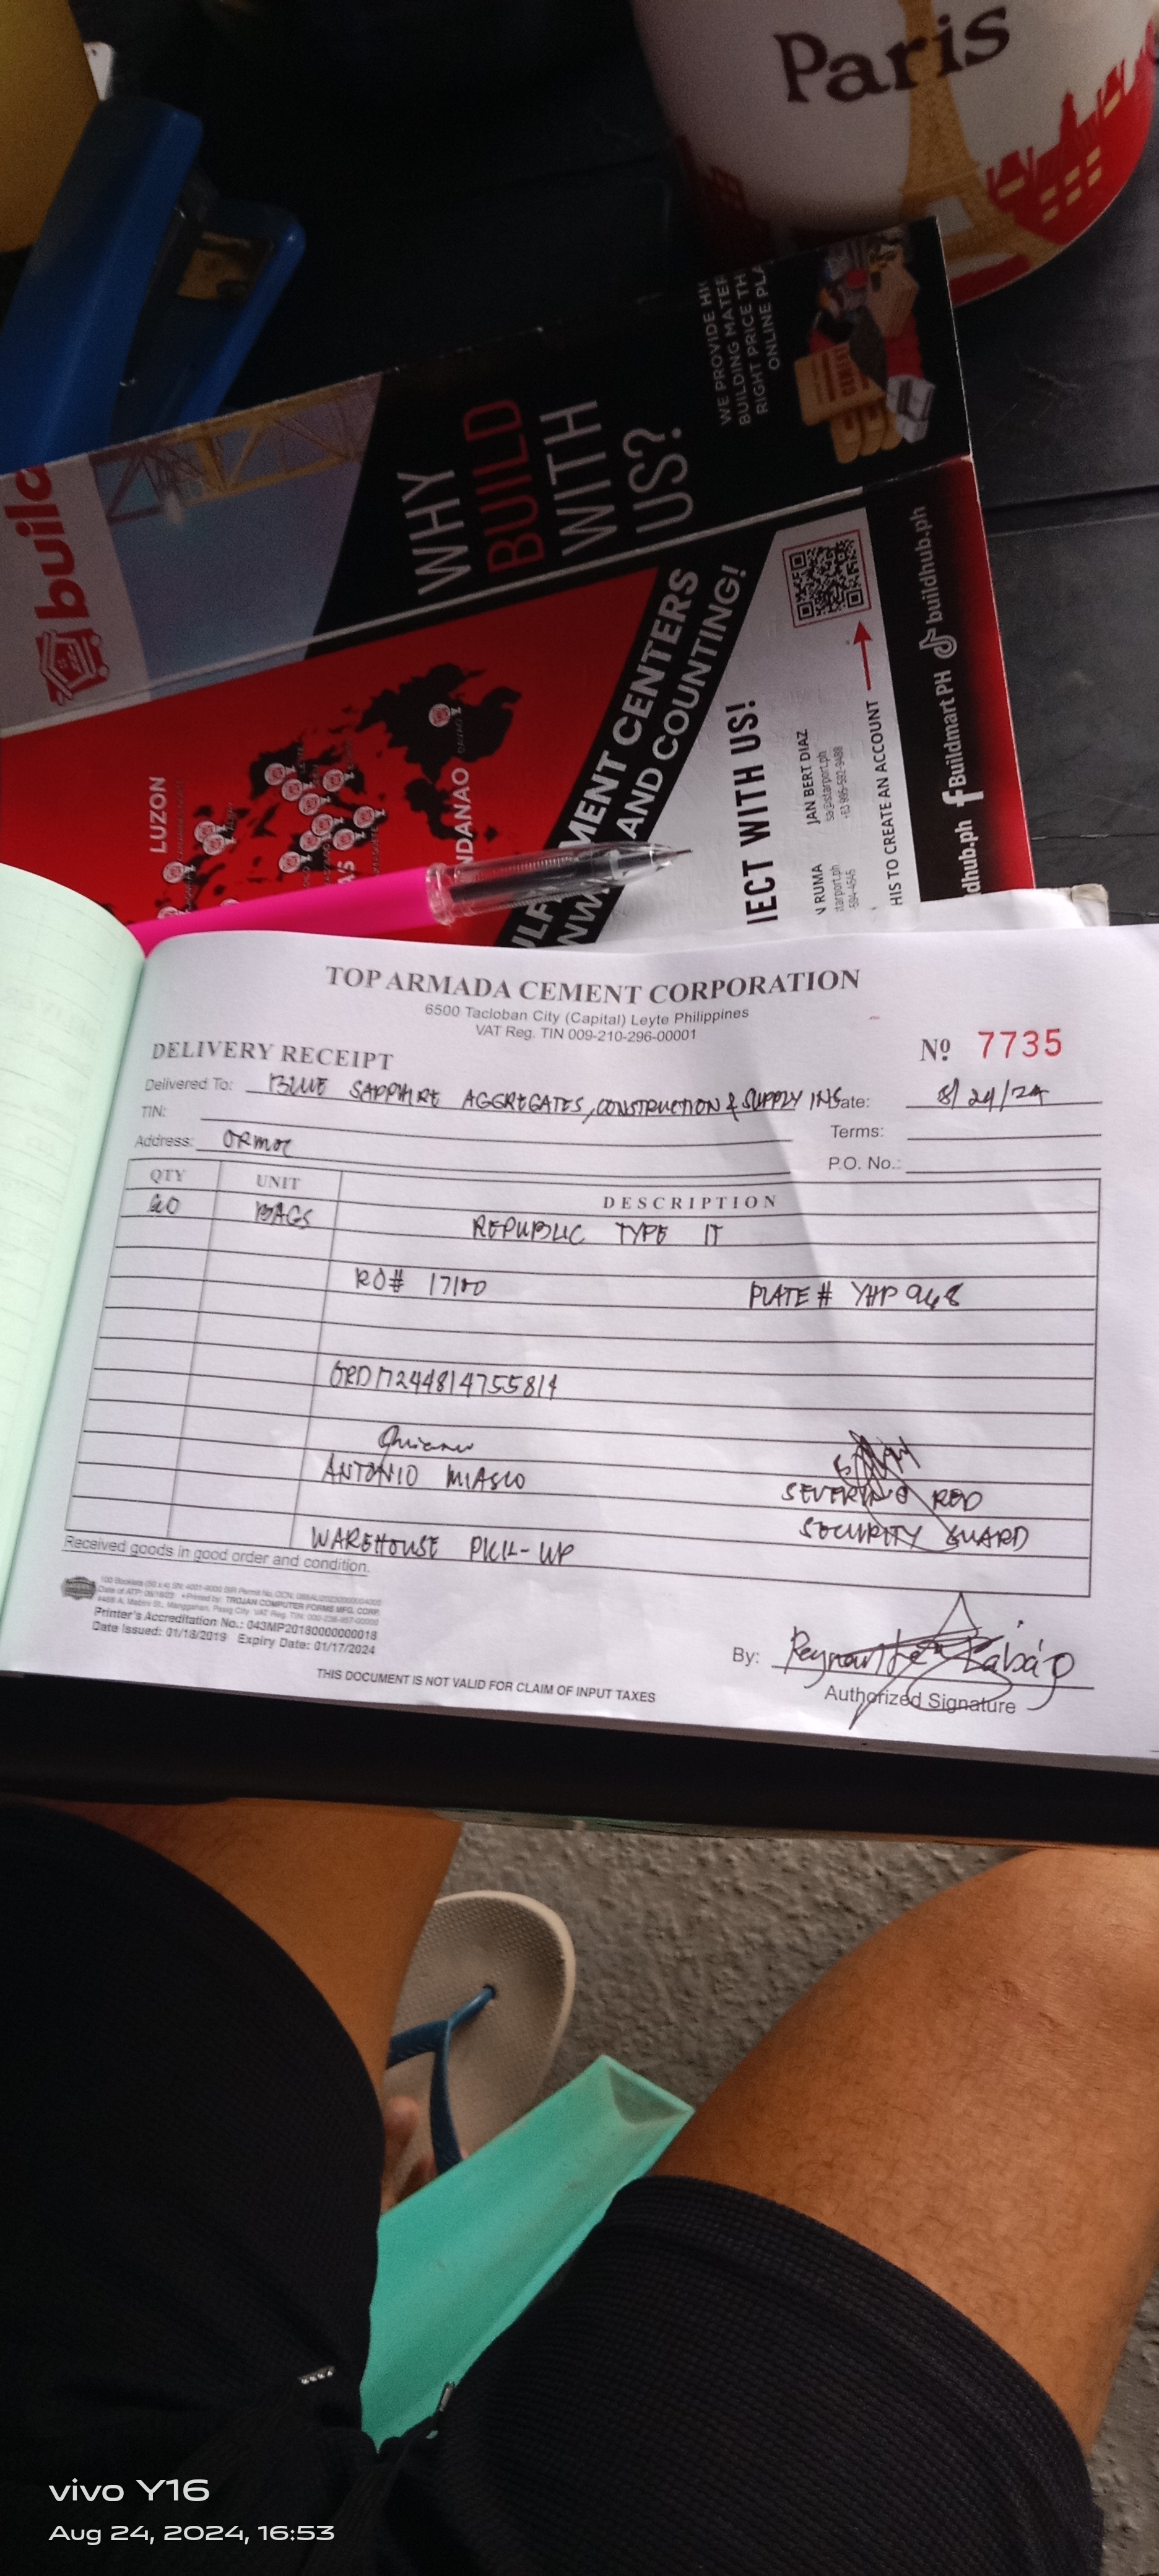 Paris
WE PROVIDE HI
BUILDING MATER
RIGHT PRICE TH
ONLINE PLA
build
WHY
BUILD
WITH
US?
MENT CENTERS
AND COUNTING!
LUZON
NDANAO
JECT WITH US!
JAN BERT DIAZ
sa@starport.ph
N RUMA
starport.ph
HIS TO CREATE AN ACCOUNT
dhub.ph BuildmartPH buildhub.ph
TOP ARMADA CEMENT CORPORATION
6500 Tacloban City (Capital) Leyte Philippines
VAT Reg. TIN 009-210-296-00001
DELIVERY RECEIPT
Nº 7735
Delivered To: BLUE SAPPHIRE AGGREGATES, CONSTRUCTION & SUPPLY INS Date: 8/24/24
TIN:
Terms:
Address: ORMOC
P.O. No.:
QTY UNIT DESCRIPTION
BAGS REPUBLIC TYPE IT
RO# 17100 PLATE # YHP 948
ORD1724481475581
ANTONIO MIASCO
SEVERINO RED
SECURITY GUARD
WAREHOUSE PICK-UP
Received goods in good order and condition.
Printer's Accreditation No.: 043MP20180000000018
Date Issued: 01/18/2019 Expiry Date: 01/17/2024
THIS DOCUMENT IS NOT VALID FOR CLAIM OF INPUT TAXES
By: Reynante Labajo
Authorized Signature
vivo Y16
Aug 24, 2024, 16:53